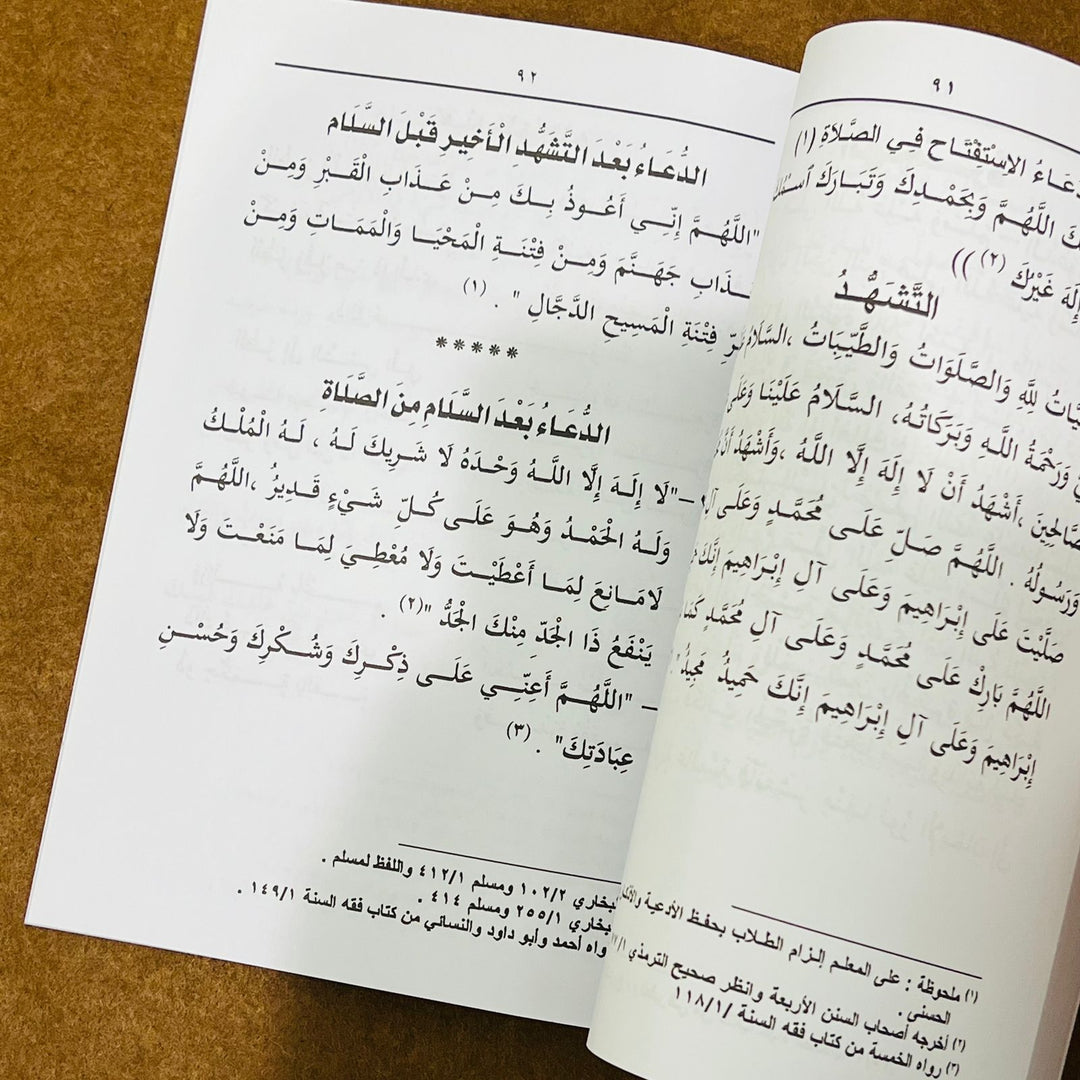 ٩١
دعَـاءُ الإسْتِفْتَـاح فِي الصَّـلَاةِ (١)
اللَّهُمَّ وَبِحَمْدِكَ وَتَبَارَكَ
إِلَهَ غَيْرُكَ (٢) ))
التَّشَهُّـدُ
لِلَّهِ وَالصَّلَوَاتُ وَالطَّيِّبَاتُ ،السَّلَامُ
وَرَحْمَةُ اللَّهِ وَبَرَكَاتُهُ، السَّلَامُ عَلَيْنَا وَعَلَى
،أَشْهَدُ أَنْ لَا إِلَهَ إِلَّا اللَّهُ ،وَأَشْهَدُ أَنَّ
وَرَسُولُهُ . اللَّهُمَّ صَلِّ عَلَـى مُحَمَّـدٍ وَعَلَـى آلِ
صَلَّيْتَ عَلَى إِبْـرَاهِيمَ وَعَلَـى آلِ إِبْـرَاهِيمَ إِنَّكَ
اللَّهُمَّ بَارِكْ عَلَـى مُحَمَّـدٍ وَعَلَـى آلِ مُحَمَّـدٍ كَمَا
إِبْرَاهِيمَ وَعَلَى آلِ إِبْرَاهِيمَ إِنَّكَ حَمِيدٌ مَجِيدٌ"
(١) ملحوظة : على المعلم إلزام الطلاب بحفظ الأدعية
الحسنى .
(٢) أخرجه أصحاب السنن الأربعة وانظر صحيح الترمذي
(٣) رواه الخمسة من كتاب فقه السنة /١/١١٨
٩٢
الدُّعَـاءُ بَعْـدَ التَّشَهُّدِ الْأَخِيرِ قَبْلَ السَّلَامِ
"اللَّهُمَّ إِنِّـي أَعُـوذُ بِـكَ مِنْ عَـذَابِ الْقَبْـرِ وَمِـنْ
عَـذَابِ جَهَنَّمَ وَمِـنْ فِتْنَـةِ الْمَحْيَـا وَالْمَمَـاتِ وَمِـنْ
شَرِّ فِتْنَةِ الْمَسِيحِ الدَّجَّالِ " . (١)
*****
الدُّعَـاءُ بَعْـدَ السَّـلَامِ مِنَ الصَّلَاةِ
–"لَا إِلَـهَ إِلَّا اللَّـهُ وَحْـدَهُ لَا شَـرِيكَ لَـهُ ، لَـهُ الْمُلْـكُ
وَلَـهُ الْحَمْـدُ وَهُـوَ عَلَـى كُـلِّ شَـيْءٍ قَـدِيرُ ،اللَّهُـمَّ
لَامَـانِعَ لِمَـا أَعْطَيْـتَ وَلَا مُعْطِـيَ لِمَـا مَنَعْـتَ وَلَا
يَنْفَعُ ذَا الْجَدِّ مِنْكَ الْجَدُّ "(٢) .
– "اللَّهُـمَّ أَعِنِّـي عَلَـى ذِكْـرِكَ وَشُـكْرِكَ وَحُسْـنِ
عِبَادَتِكَ" . (٣)
البخاري ١٠٢/٢ ومسلم ٤١٢/١ واللفظ لمسلم .
البخاري ٢٥٥/١ ومسلم ٤١٤ .
رواه أحمد وأبو داود والنسائي من كتاب فقه السنة ١٤٩/١ .